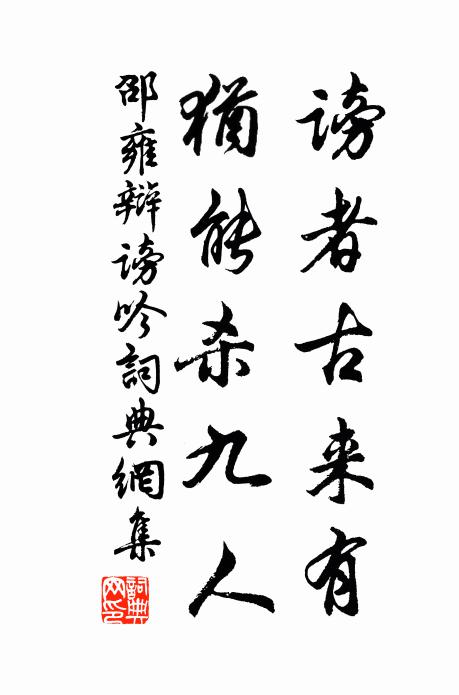 谤者古来有
犹能杀九人
邵雍辩谤吟詞典網集
詞典网印